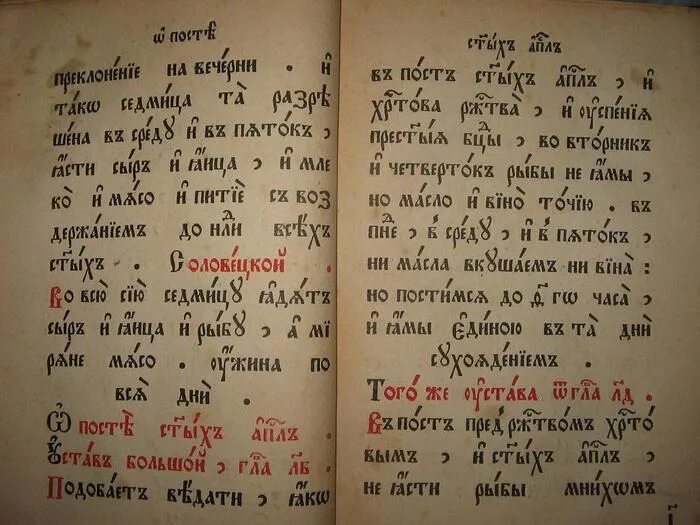 ѡ҆ постѣ
преклоне́нїе на вече́рни . и҆
та́кѡ седми́ца та̀ разрѣ
шена̀ въ сре́дꙋ и҆ въ пѧто́къ ,
ꙗ҆́сти сы́ръ и҆ ꙗ҆́ица , и҆ мле
ко̀ и҆ мѧ́со и҆ питїѐ съ воз
держа́нїемъ до нлⷣи всѣ́хъ
ст҃ы́хъ . Солове́цкой .
Во всю̀ сїю̀ седми́цꙋ ꙗ҆дѧ́тъ
сы́ръ и҆ ꙗ҆́ица и҆ ры́бꙋ , а҆ мі
рѧ́не мѧ́со . оу҆́жина по
всѧ̑ дни̑ .
Ѡ҆ постѣ̀ ст҃ы́хъ а҆п҃лъ .
Оу҆ста́въ большо́й , гла̑ л҃в .
Подоба́етъ вѣ́дати , ꙗ҆́кѡ
ст҃ы́хъ а҆п҃лъ
въ по́стъ ст҃ы́хъ а҆п҃лъ , и҆
хрⷭ҇то́ва ржⷭ҇тва̀ , и҆ оу҆спе́нїѧ
прест҃ы́ѧ бц҃ы , во вто́рникъ
и҆ четверто́къ ры́бы не ꙗ҆мы̀ ,
но ма́сло и҆ вїно̀ то́чїю . въ
пнⷣе , в̾ сре́дꙋ , и҆ в̾ пѧто́къ ,
ни ма́сла вкꙋша́емъ ни вїна̀ :
но пости́мсѧ до ѳ҃ гѡ часа̀ ,
и҆ ꙗ҆мы̀ є҆ди́ною въ та̑ дни̑
сꙋхоѧде́нїемъ .
Того́ же оу҆ста́ва ѿ гла̑ л҃д .
Въ по́стъ пред̾ ржⷭ҇тво́мъ хрⷭ҇то́
вымъ , и҆ ст҃ы́хъ а҆п҃лъ ,
не ꙗ҆́сти ры́бы мни́хѡмъ